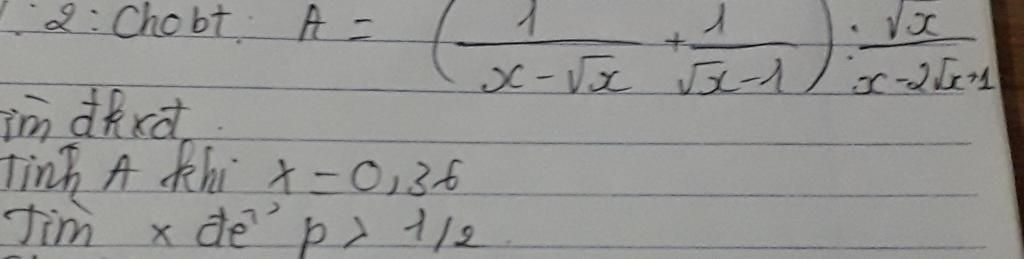 2: Cho bt: A = (1/(x-√x) + 1/(√x-1)) : √x/(x-2√x+1)
ìm đkxđ.
Tính A khi x = 0,36
Tìm x để p > 1/2